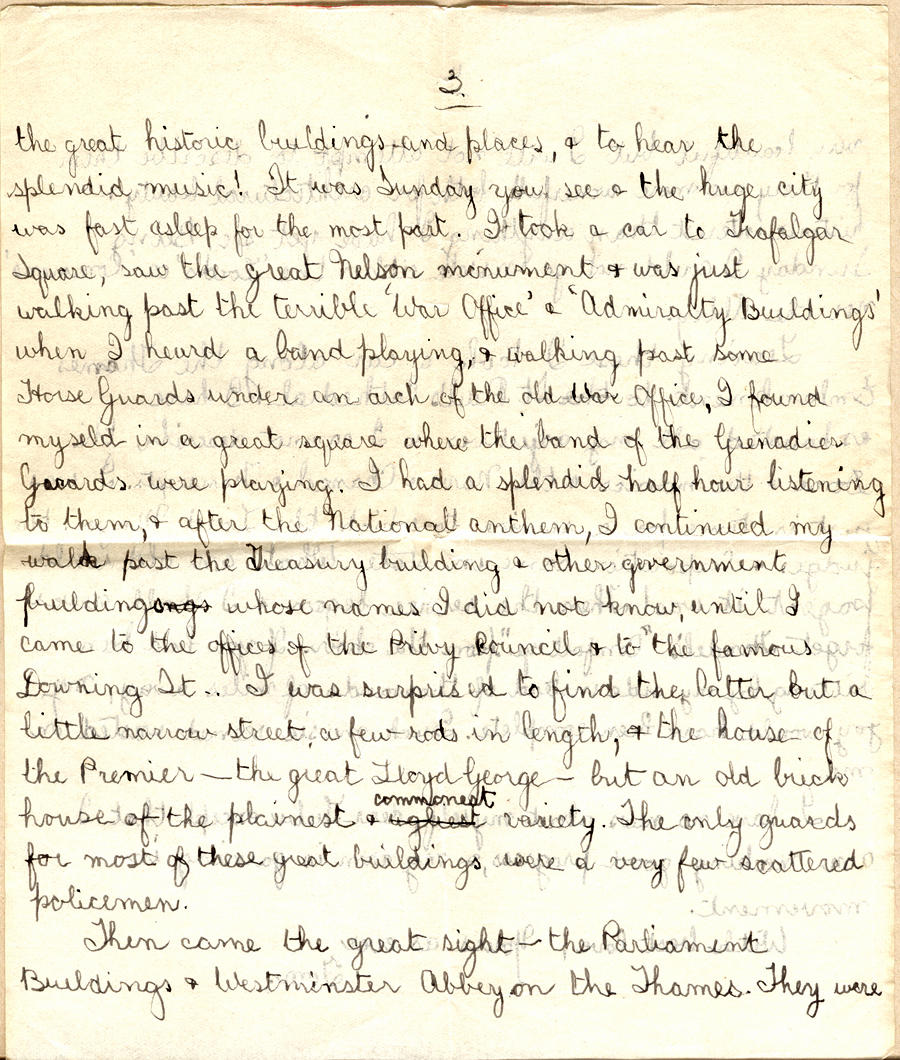 3.
the great historic buildings and places, & to hear the
splendid music! It was Sunday you see & the huge city
was fast asleep for the most part. I took a car to Trafalgar
Square, saw the great Nelson monument & was just
walking past the terrible 'War Office' & 'Admiralty Buildings'
when I heard a band playing, & walking past some
Horse Guards under an arch of the old War Office, I found
myseld in a great square where the band of the Grenadier
Guards were playing. I had a splendid half hour listening
to them, & after the National anthem, I continued my
walk past the Treasury building & other government
buildings whose names I did not know, until I
came to the offices of the Privy Council & to "the famous
Downing St.. I was surprised to find the latter but a
little narrow street, a few rods in length, & the house of
the Premier — the great Lloyd George — but an old brick
commonest
house of the plainest & ugliest variety. The only guards
for most of these great buildings, were a very few scattered
policemen.
Then came the great sight — the Parliament
Buildings & Westminster Abbey on the Thames. They were